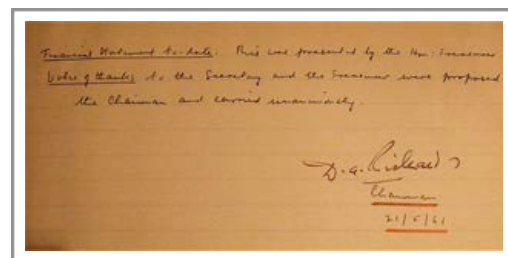 Financial Statement to-date. This was presented by the Hon. Treasurer
Votes of thanks to the Secretary and the Treasurer were proposed
the Chairman and carried unanimously.
D. A. Richards
Chairman
21/5/61